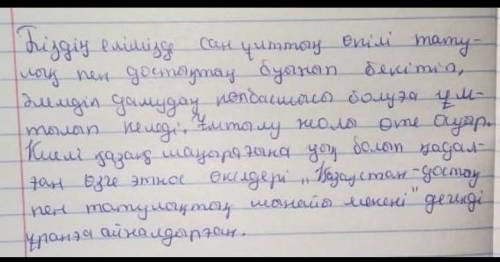 Біздің елімізде сан ұлттың өкілі тату-
лық пен достықтан буынып бекітіп,
әлемдіп дамудан көпбасшысы болуға ұм-
тылып келеді. Ұмтылу жолы өте ауыр.
Киелі қазақ шаңырағына уық болып қадал-
ған өзге этнос өкілдері „Қазақстан-достық
пен татулықтың шынайы мекені" дегенді
ұранға айналдырған.